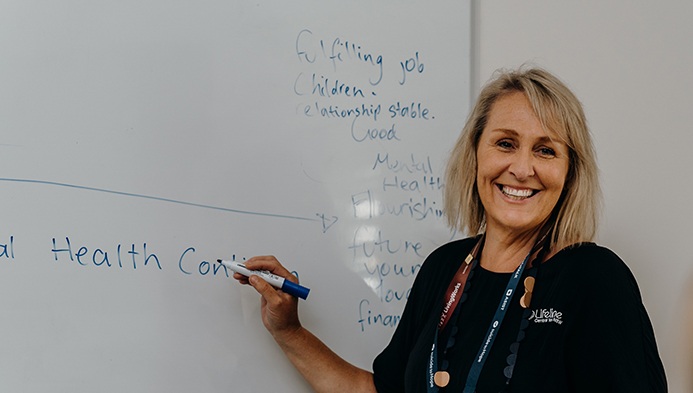 fulfilling job
Children.
relationship stable.
Good
Mental
Health
flourishing
future
your
love
finan
al Health Contin
LivingWorks
Lifeline